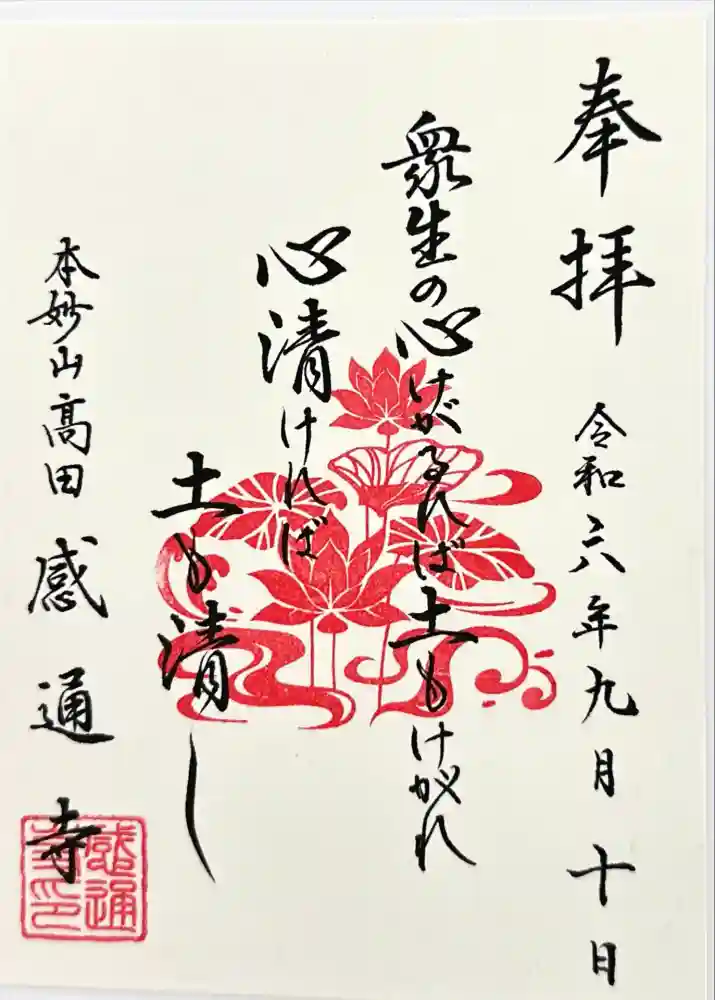 奉拝 令和六年九月十日
衆生の心けがるれば土もけがれ
心清ければ
土も清し
本妙山高田 感通寺
感通
寺印